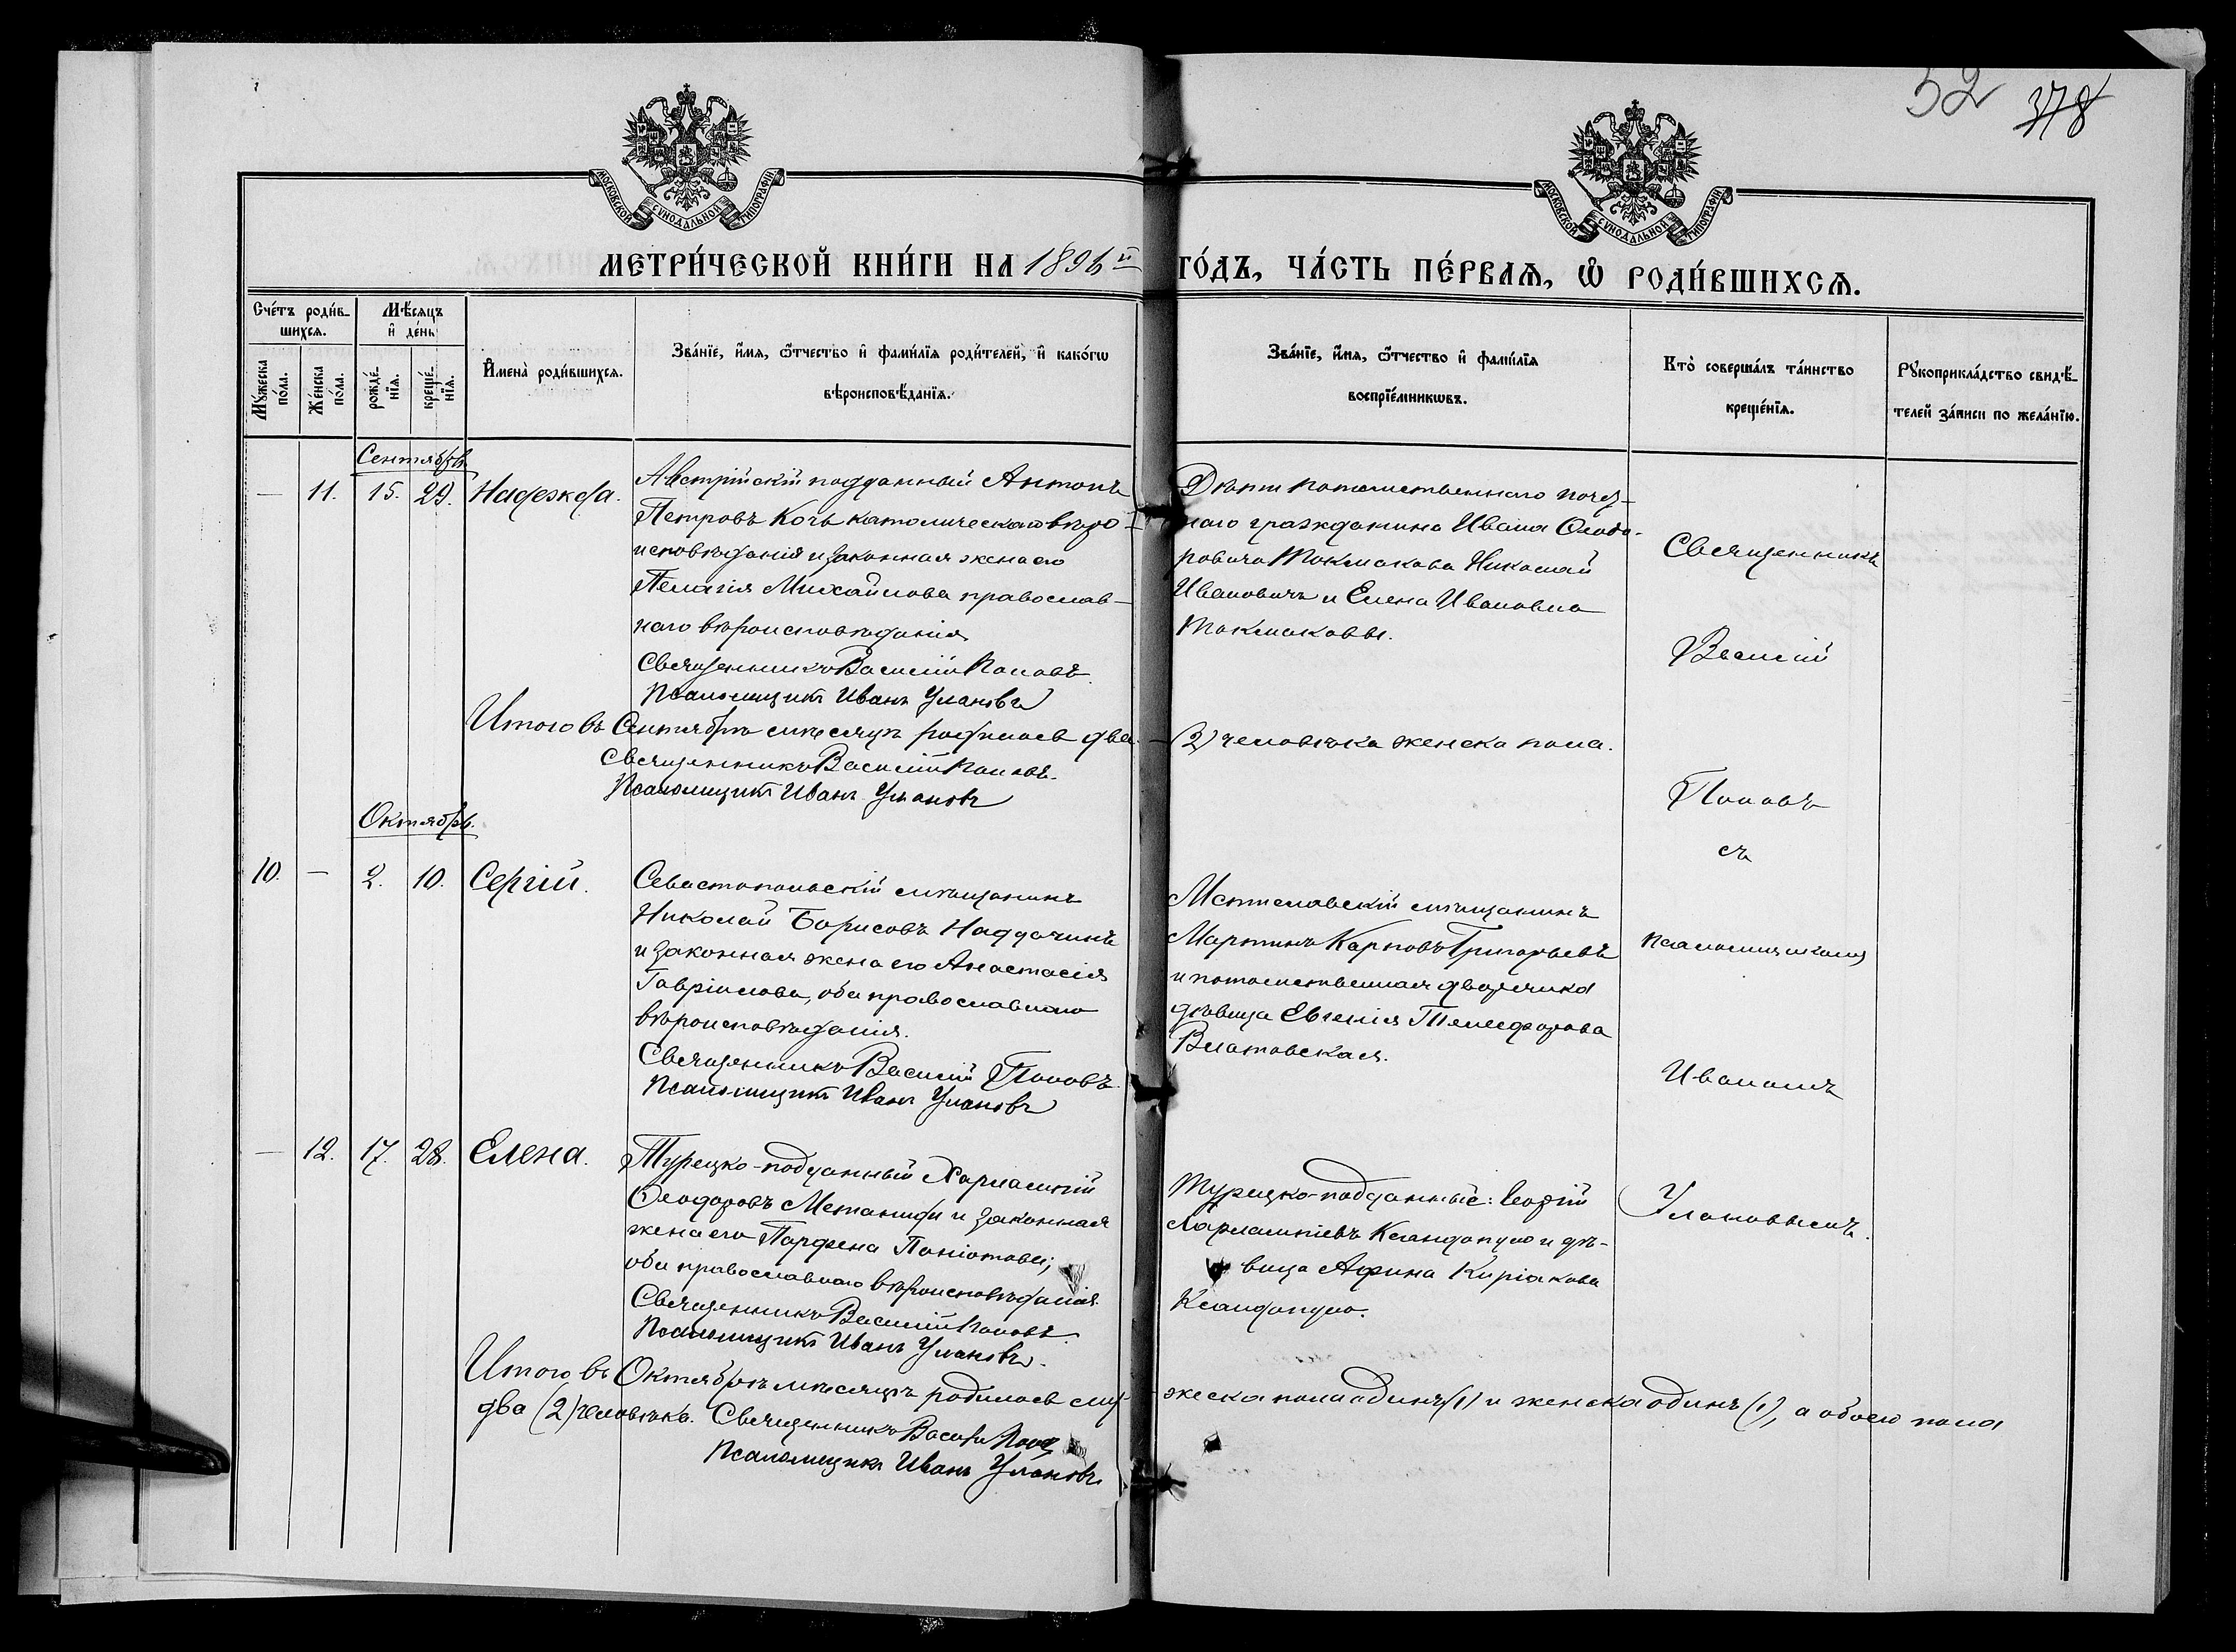 52 378
МОСКОВСКОЙ СѴНОДАЛЬНОЙ ТИПОГРАФІИ
МОСКОВСКОЙ СѴНОДАЛЬНОЙ ТИПОГРАФІИ
МЕТРИ́ЧЕСКОЙ КНИ́ГИ НА 1896й ГО́ДЪ, ЧА́СТЬ ПЕ́РВАЯ, Ѡ҆ РОДИ́ВШИХСЯ.
Сче́тъ роди́в-
шихся.
Мѣ́сяцъ
и҆ де́нь
Мꙋ́жеска по́ла.
Же́нска по́ла.
рожде́-
нїя.
креще́-
нїя.
И҆мена̀ роди́вшихся.
Зва́нїе, и҆́мя, ѻ҆́тчество и҆ фами́лїя роди́телей, и҆ како́гѡ
вѣроисповѣ́данїя.
Зва́нїе, и҆́мя, ѻ҆́тчество и҆ фами́лїя
воспрїе́мникѡвъ.
Кто̀ соверша́лъ та́инство
креще́нїя.
Рꙋкоприкла́дство свидѣ́-
телей за́писи по жела́нїю.
Сентябрь
— 11. 15. 29. Надежда.
Австрійскій подданный Антонъ
Петровъ Кочь католическаго вѣро-
исповѣданія и законная жена его
Пелагія Михайлова православ-
наго вѣроисповѣданія
Священникъ Василій Поповъ.
Псаломщикъ Иванъ Улановъ
Дѣти потомственнаго почет-
наго гражданина Ивана Ѳеодо-
ровича Токмакова Николай
Ивановичъ и Елена Ивановна
Токмаковы.
Священникъ
Василій
Поповъ
съ
псаломщикомъ
Иваномъ
Улановымъ.
Итого въ Сентябрѣ мѣсяцѣ родилось два — (2) человѣка женска пола.
Священникъ Василій Поповъ.
Псаломщикъ Иванъ Улановъ
Октябрь.
10. — 2. 10. Сергій.
Севастопольскій мѣщанинъ
Николай Борисовъ Наддачинъ
и законная жена его Анастасія
Гавріилова, оба православнаго
вѣроисповѣданія.
Священникъ Василій Поповъ.
Псаломщикъ Иванъ Улановъ
Мстиславскій мѣщанинъ
Мартинъ Карповъ Григорьевъ
и потомственная дворянка
дѣвица Евгенія Телесфорова
Влатовская.
— 12. 17. 28. Елена.
Турецко-подданный Харлампій
Ѳеодоровъ Метаниди и законная
жена его Парфена Паніотова;
оба православнаго вѣроисповѣданія.
Священникъ Василій Поповъ.
Псаломщикъ Иванъ Улановъ.
Турецко-подданные: Георгій
Харлампіевъ Ксандопуло и дѣ-
вица Афина Киріакова
Ксандопуло.
Итого въ Октябрѣ мѣсяцѣ родилось му- жеска пола одинъ (1) и женска одинъ (1), а обоего пола
два (2) человѣка. Священникъ Василій Поповъ
Псаломщикъ Иванъ Улановъ